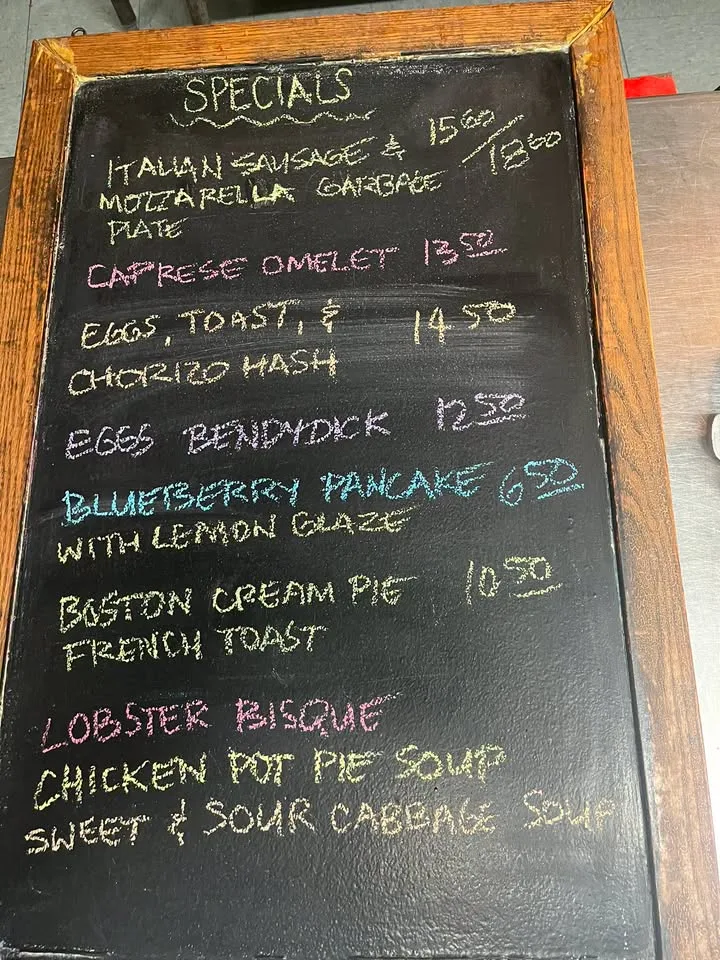 SPECIALS
ITALIAN SAUSAGE & 1500/1800
MOZZARELLA GARBAGE
PLATE
CAPRESE OMELET 1350
EGGS, TOAST, & 1450
CHORIZO HASH
EGGS BENDYDICK 1250
BLUEBERRY PANCAKE 650
WITH LEMON GLAZE
BOSTON CREAM PIE 1050
FRENCH TOAST
LOBSTER BISQUE
CHICKEN POT PIE SOUP
SWEET & SOUR CABBAGE SOUP